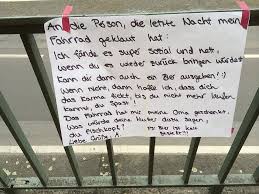 An die Person, die letzte Nacht mein
Fahrrad geklaut hat:
Ich fände es super sozial und nett,
wenn du es wieder zurück bringen würdest.
Kann dir dann auch ein Bier ausgeben! :)
Wenn nicht, dann hoffe ich, dass dich
das Karma fickt, bis du nicht mehr laufen
kannst, du Spast!
Das Fahrrad hat mir meine Oma geschenkt.
Was würde deine Mutter dazu sagen,
du Fischkopf?
Liebe Grüße
Bier ist kalt
gestellt!!!